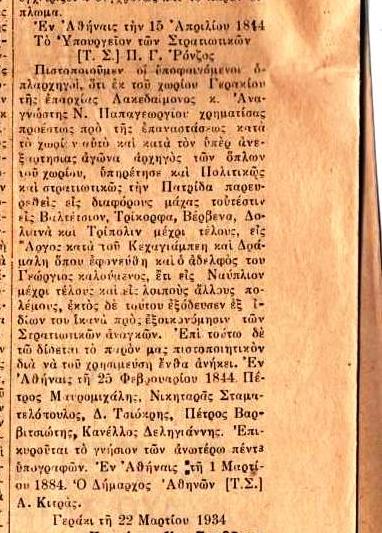 πλωμα.
Ἐν Ἀθήναις τὴν 15 Ἀπριλίου 1844
Τὸ Ὑπουργεῖον τῶν Στρατιωτικῶν
[Τ. Σ.] Π. Γ. Ῥόνζος
Πιστοποιοῦμεν οἱ ὑποφαινόμενοι ὁ-
πλαρχηγοί, ὅτι ἐκ τοῦ χωρίου Γερακίου
τῆς ἐπαρχίας Λακεδαίμονος κ. Ἀνα-
γνώστης Ν. Παπαγεωργίου χρηματίσας
προεστὼς πρὸ τῆς ἐπαναστάσεως κατὰ
τὸ χωρίον αὐτὸ καὶ κατὰ τὸν ὑπὲρ ἀνε-
ξαρτησίας ἀγῶνα ἀρχηγὸς τῶν ὅπλων
τοῦ χωρίου, ὑπηρέτησε καὶ Πολιτικῶς
καὶ στρατιωτικῶς τὴν Πατρίδα παρευ-
ρεθεὶς εἰς διαφόρους μάχας τουτέστιν
εἰς Βαλτέτσιον, Τρίκορφα, Βέρβενα, Δο-
λιανὰ καὶ Τρίπολιν μέχρι τέλους, εἰς
Ἄργος κατὰ τοῦ Κεχαγιάμπεη καὶ Δρά-
μαλη ὅπου ἐφονεύθη καὶ ὁ ἀδελφός του
Γεώργιος καλούμενος, ἔτι εἰς Ναύπλιον
μέχρι τέλους καὶ εἰς λοιποὺς ἄλλους πο-
λέμους, ἐκτὸς δὲ τούτου ἐξόδευσεν ἐξ Ἰ-
δίων του ἱκανὰ πρὸς ἐξοικονόμησιν τῶν
Στρατιωτικῶν ἀναγκῶν. Ἐπὶ τούτω δὲ
τῶ δίδεται τὸ παρόν μας πιστοποιητικὸν
διὰ νὰ τοῦ χρησιμεύση ἔνθα ἀνήκει. Ἐν
Ἀθήναις τῆ 25 Φεβρουαρίου 1844. Πέ-
τρος Μαυρομιχάλης, Νικηταρᾶς Σταμα-
τελόπουλος, Δ. Τσιόκρης, Πέτρος Βαρ-
βιτσιώτης, Κανέλλος Δεληγιάννης. Ἐπι-
κυροῦται τὸ γνήσιον τῶν ἀνωτέρω πέντε
ὑπογραφῶν. Ἐν Ἀθήναις τῆ 1 Μαρτί-
ου 1884. Ὁ Δήμαρχος Ἀθηνῶν [Τ.Σ.]
Α. Κιτρᾶς.
Γεράκι τῆ 22 Μαρτίου 1934